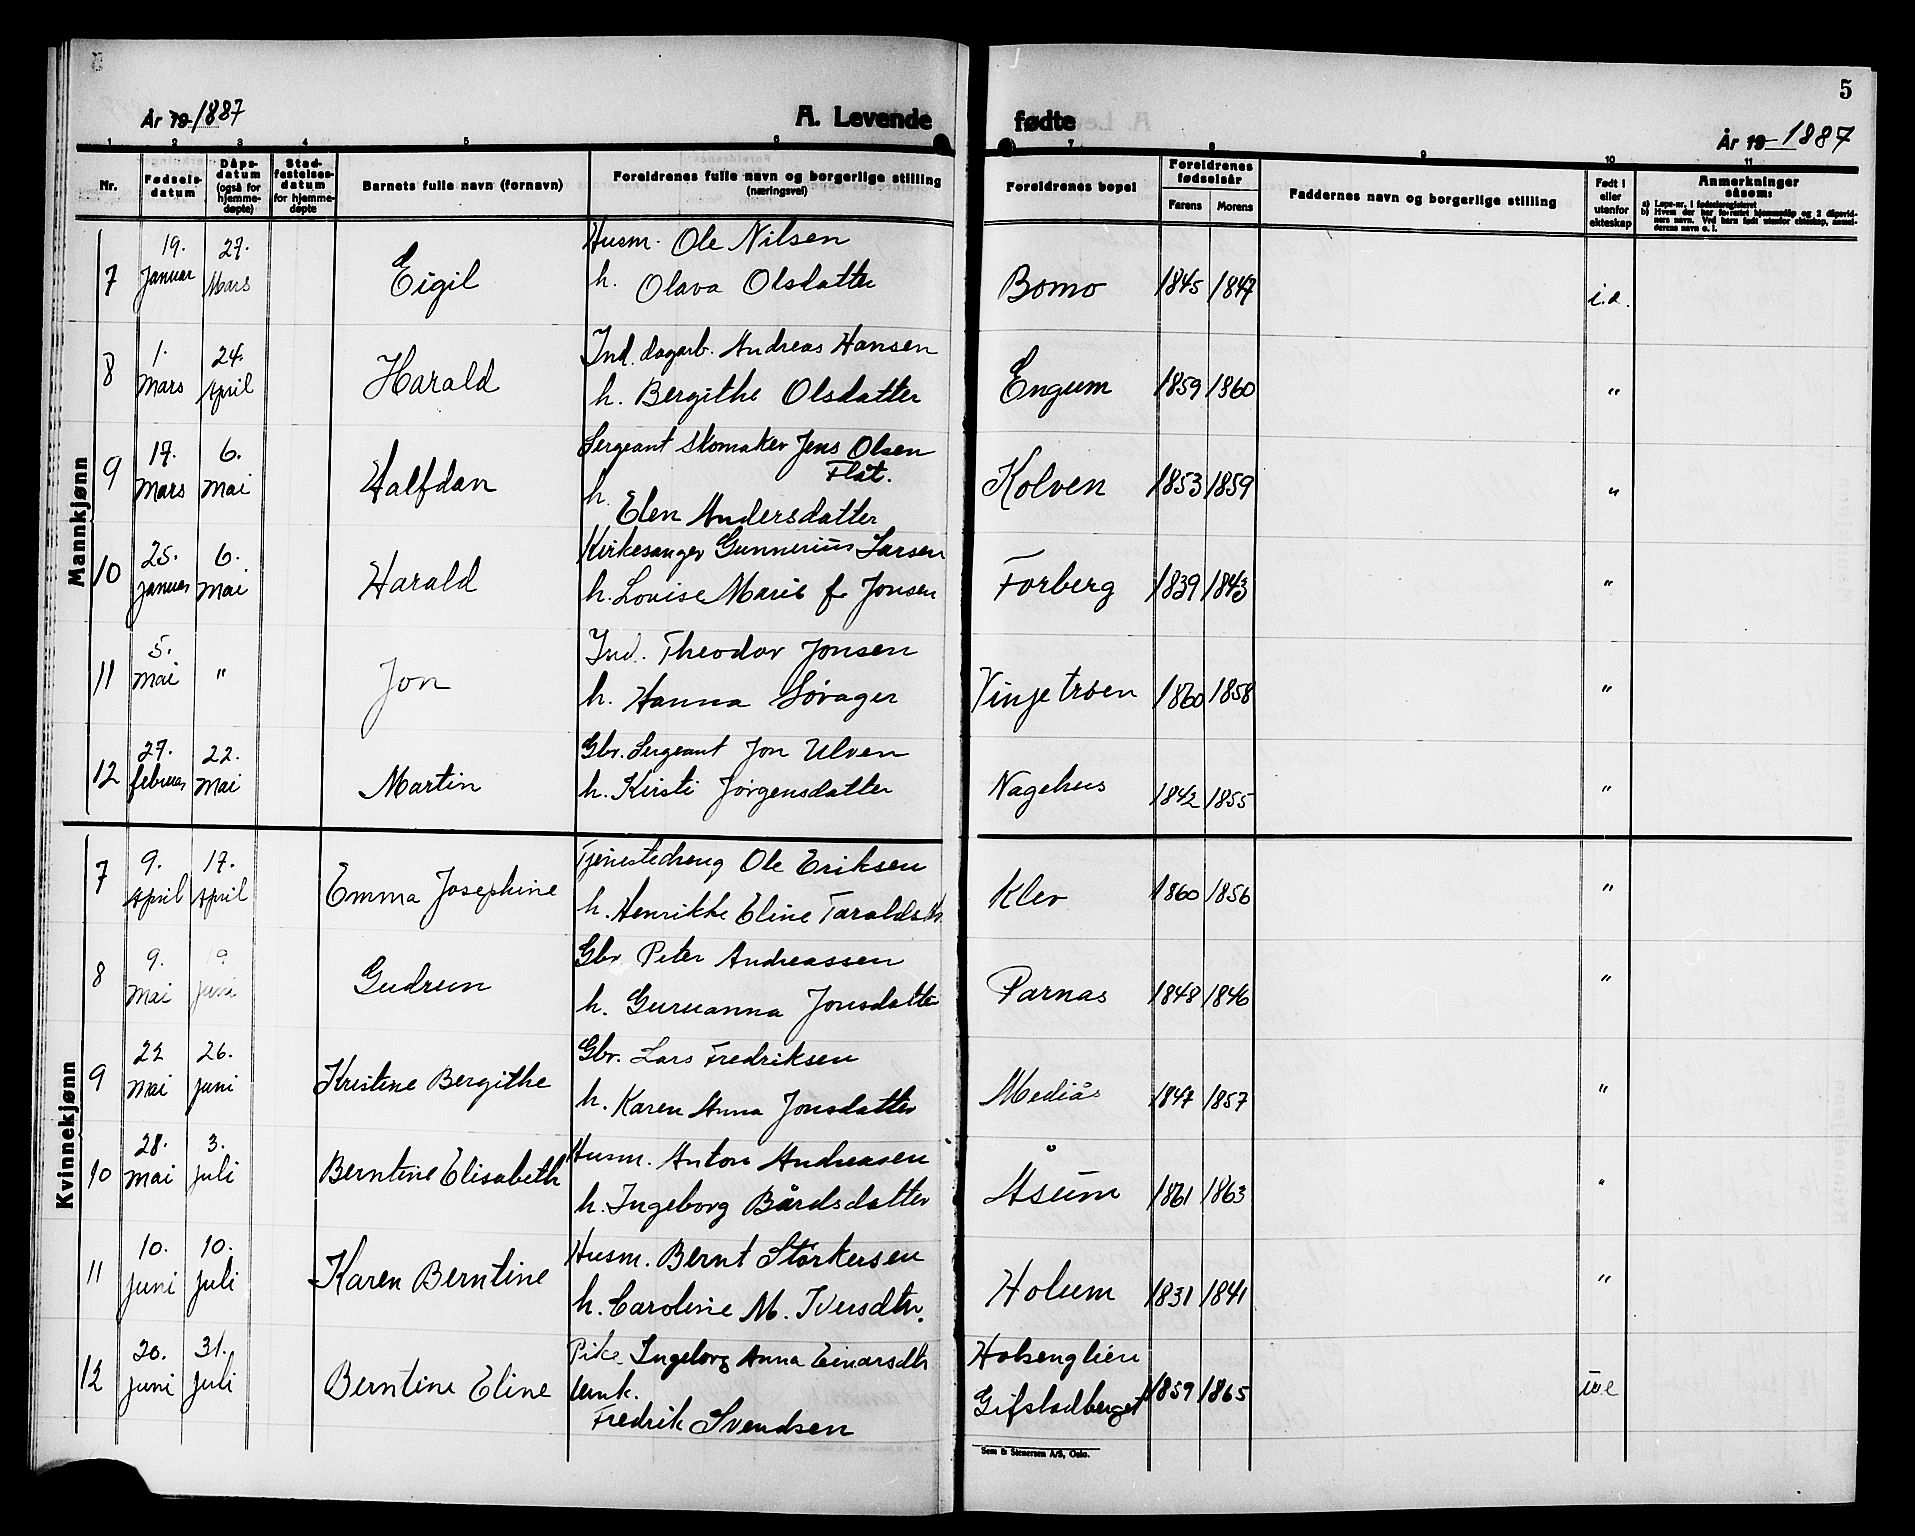 År 19 1887
A. Levende
fødte
5
År 19 1887
1 2 3 4 5 6 7 8 9 10 11
Nr. | Fødsels-datum | Dåps-datum (også for hjemme-døpte) | Stad-festelses-datum for hjemme-døpte | Barnets fulle navn (fornavn) | Foreldrenes fulle navn og borgerlige stilling (næringsvei) | Foreldrenes bopel | Foreldrenes fødselsår Farens Morens | Faddernes navn og borgerlige stilling | Født i eller utenfor ekteskap | Anmerkninger såsom: a) Løpe-nr. i fødselsregisteret
Mannkjønn
7 | 19. Januar | 27. Mars | Eigil | Husm. Ole Nilsen | Bomo | 1845 | 1847 | i.e.
h. Olava Olsdatter
8 | 1. Mars | 24. April | Harald | Ind. dagarb. Andreas Hansen | Engum | 1859 | 1860 | "
h. Bergithe Olsdatter
9 | 17. Mars | 6. Mai | Halfdan | Sergeant Skomaker Jens Olsen | Kolven | 1853 | 1859 | "
Flåt.
h. Elen Andersdatter
10 | 25. januar | 6. Mai | Harald | Kirkesanger Gunnerius Larsen | Forberg | 1839 | 1843 | "
h. Lovise Marie f. Jonsen
11 | 5. Mai | " | Jon | Ind. Theodor Jonsen | Vinje trøen | 1860 | 1858 | "
h. Hanna Sørager
12 | 27. februar | 22. Mai | Martin | Gbr. Sergeant Jon Ulven | Nagehus | 1842 | 1855 | "
h. Kirsti Jørgensdatter
Kvinnekjønn
7 | 9. April | 17. April | Emma Josephine | Tjenestedreng Ole Eriksen | Klev | 1860 | 1856 | "
h. Henrikke Eline Taraldsdtr.
8 | 9. Mai | 19 juni | Gudrun | Gbr Peter Andreassen | Parnas | 1848 | 1846 | "
h. Guruanna Jonsdatter
9 | 22 Mai | 26. juni | Kristine Bergithe | Gbr. Lars Fredriksen | Mediås | 1847 | 1857 | "
h. Karen Anna Jonsdatter
10 | 28. Mai | 3. juli | Berntine Elisabeth | Husm. Anton Andreasen | Åsum | 1861 | 1863 | "
h. Ingeborg Bårdsdatter
11 | 10. juni | 10. juli | Karen Berntine | Husm. Bernt Størkersen | Holum | 1831 | 1841 | "
h. Caroline M. Iversdtr.
12 | 20. juni | 31. juli | Berntine Eline | Pike Ingeborg Anna Einarsdtr | Holsenglien | 1859 | 1865 | u.e
Umk. Fredrik Svendsen | Gifstadberget
Sem & Stenersen A/S, Oslo.